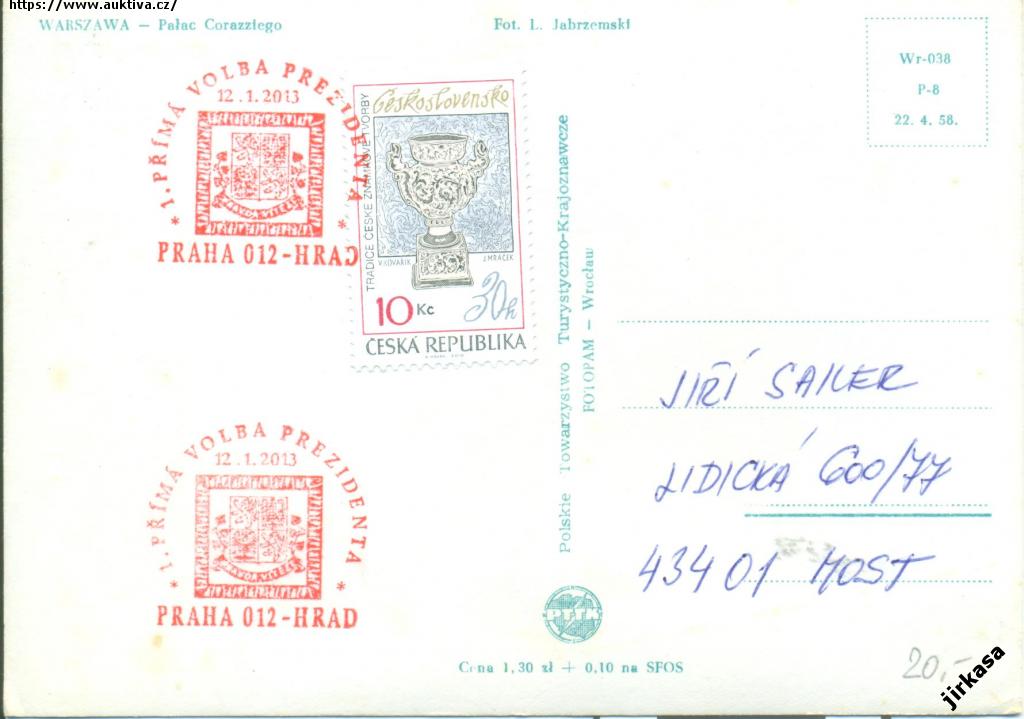 https://www.auktiva.cz/
WARSZAWA — Pałac Corazziego
Fot. L. Jabrzemski
Wr-038
P-8
22. 4. 58.
1. PŘÍMÁ VOLBA PREZIDENTA
12.1.2013
PRAVDA VÍTĚZÍ
* *
PRAHA 012-HRAD
TRADICE ČESKÉ ZNÁMKOVÉ TVORBY
Československo
V.KOVAŘÍK J.MRÁČEK
10 Kč 30h
ČESKÁ REPUBLIKA
Polskie Towarzystwo Turystyczno-Krajoznawcze
FOTOPAM — Wrocław
JIŘÍ SAILER
LIDICKÁ 600/77
434 01 MOST
1. PŘÍMÁ VOLBA PREZIDENTA
12.1.2013
PRAVDA VÍTĚZÍ
* *
PRAHA 012-HRAD
PTTK
Cena 1,30 zł + 0,10 na SFOS
20,-
jirkasa